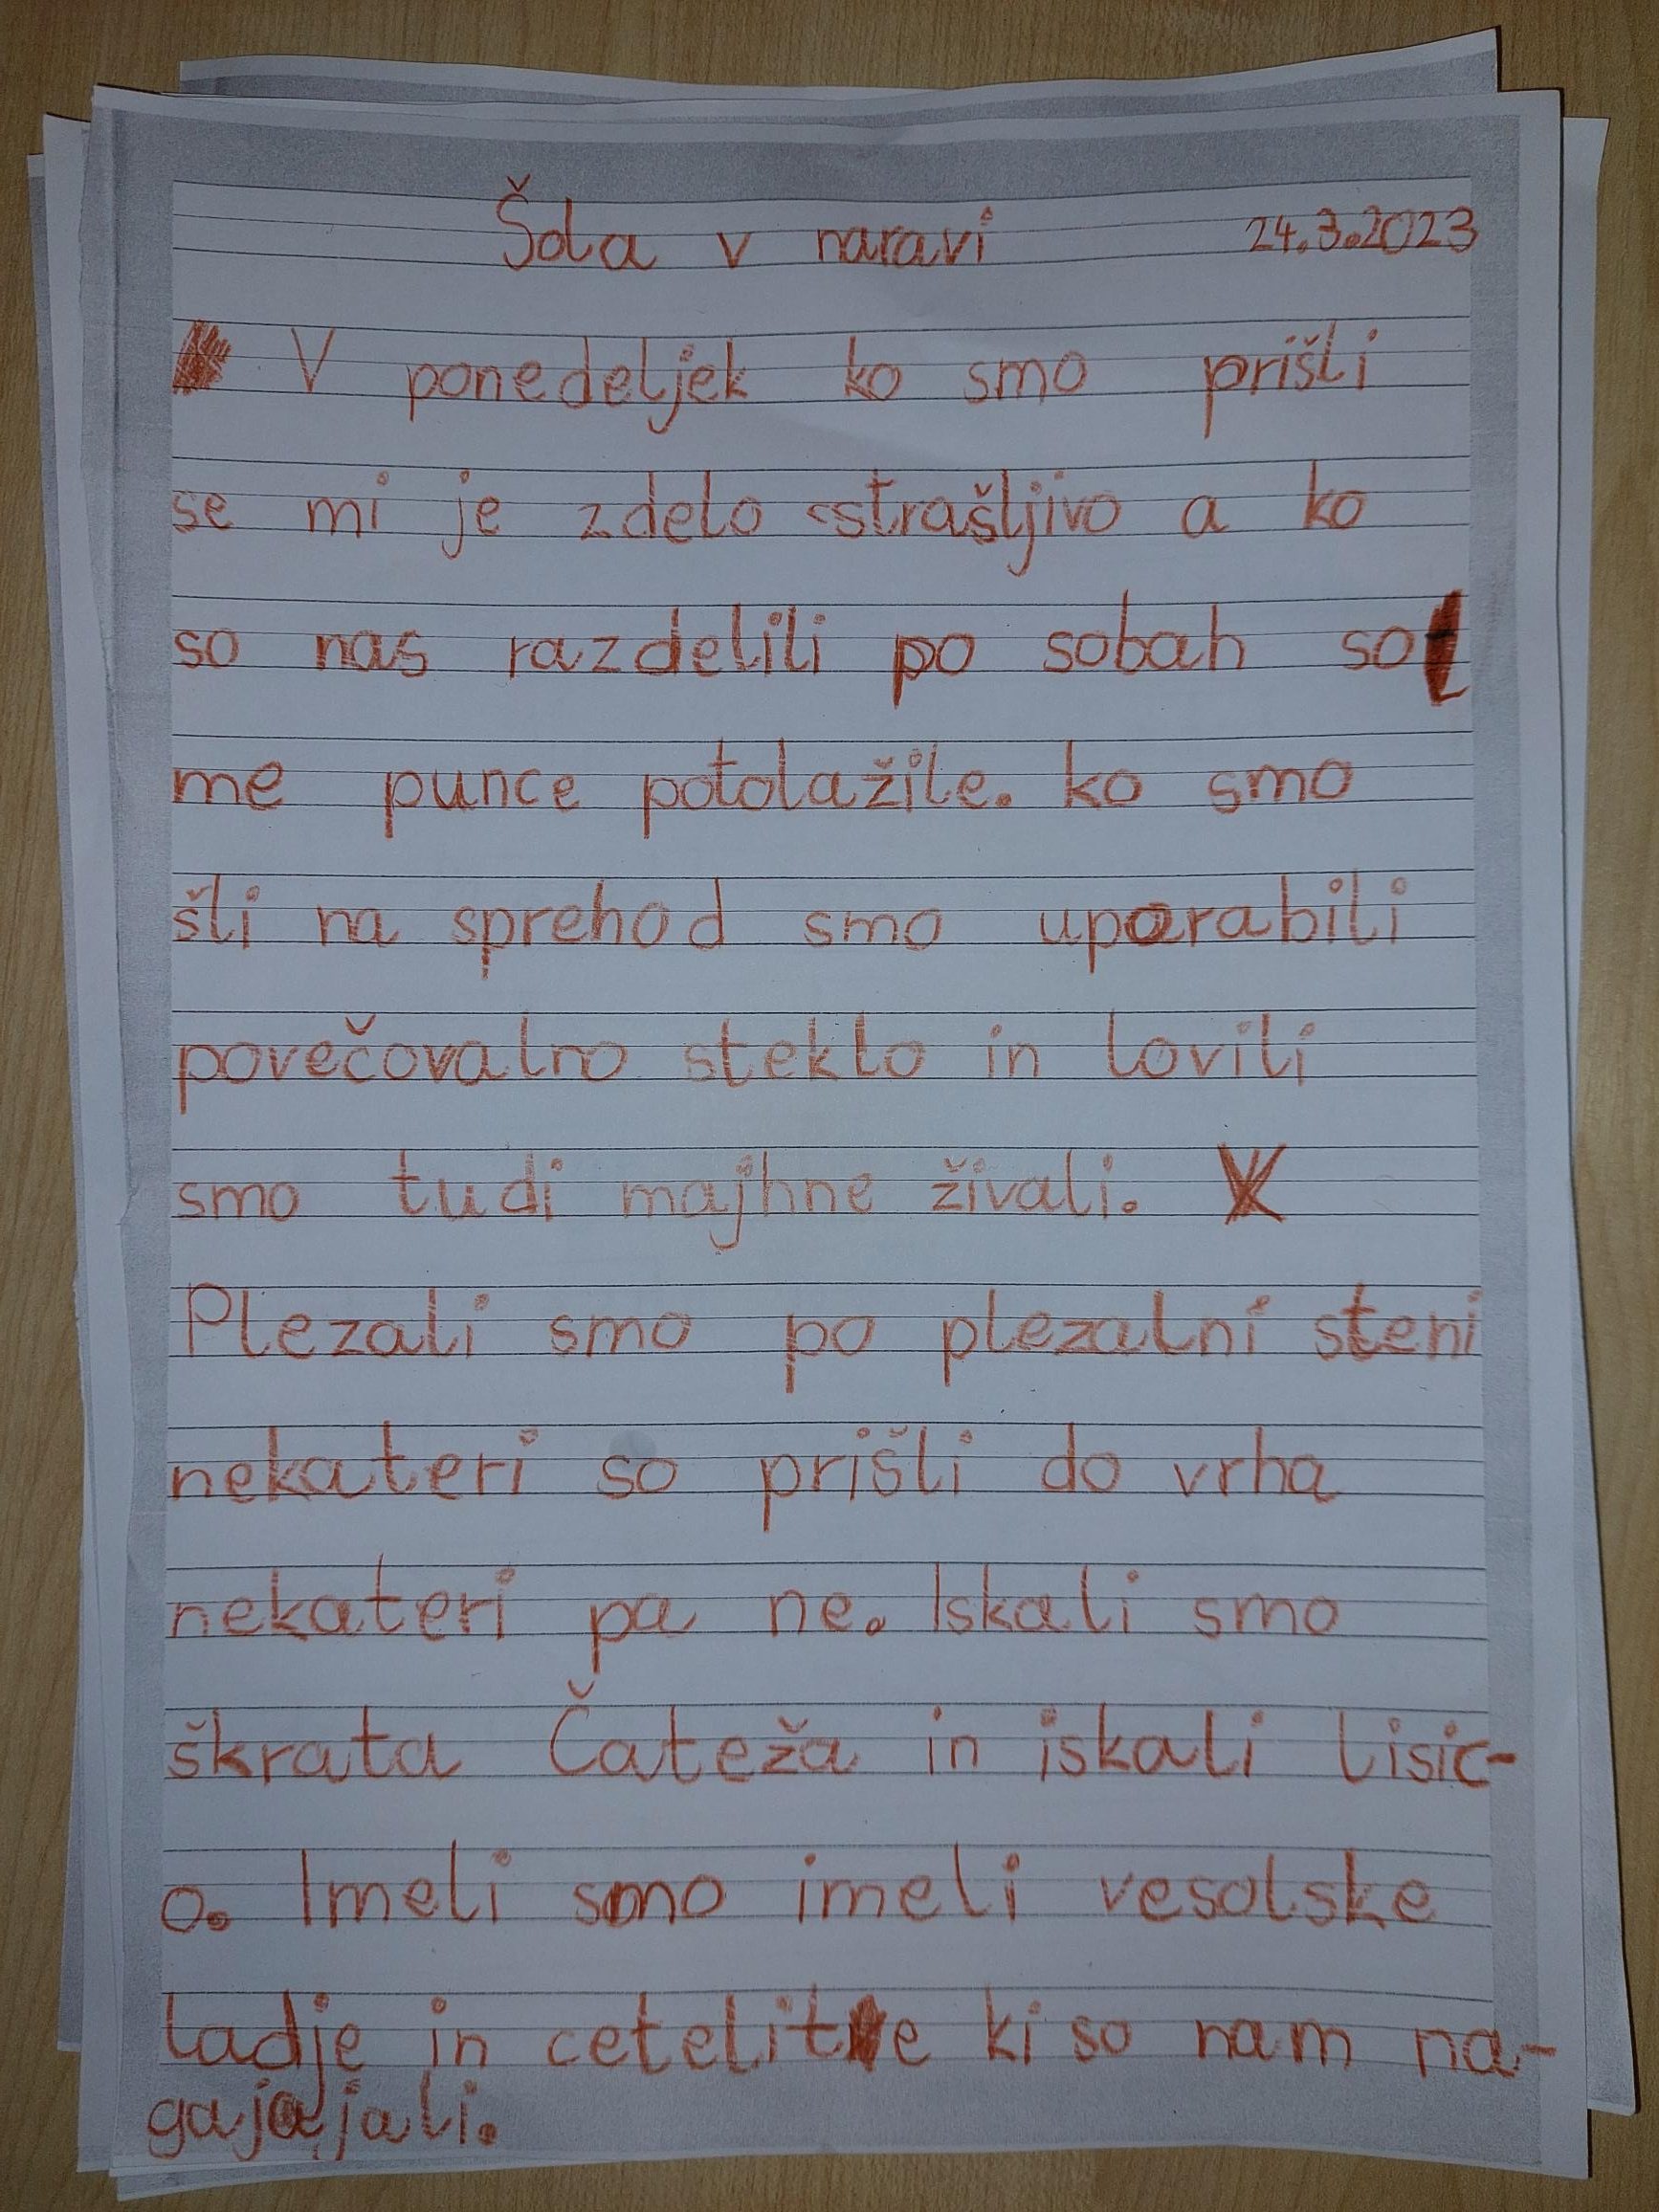 Šola v naravi 24.3.2023
V ponedeljek ko smo prišli
se mi je zdelo strašljivo a ko
so nas razdelili po sobah so
me punce potolažile. ko smo
šli na sprehod smo uporabili
povečovalno steklo in lovili
smo tudi majhne živali.
Plezali smo po plezalni steni
nekateri so prišli do vrha
nekateri pa ne. Iskali smo
škrata Čateža in iskali lisic-
o. Imeli smo imeli vesolske
ladje in cetelite ki so nam na-
gajajali.